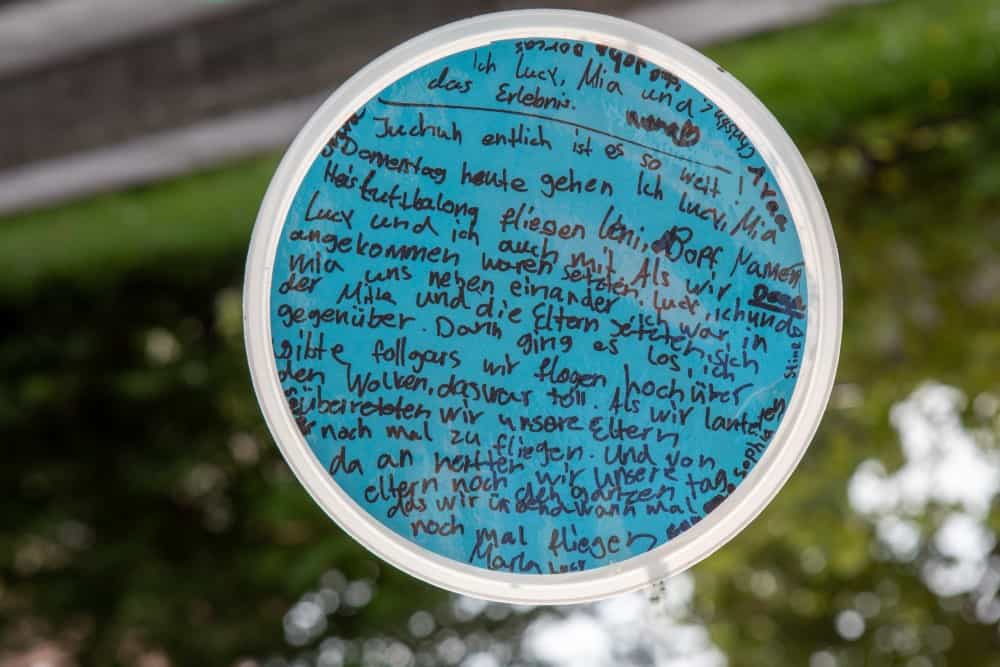 Ich Lucy, Mia und
das Erlebnis.
Juchuh entlich ist es so weit!
Donnerstag heute gehen Ich Lucy, Mia
Heisluftbalong fliegen Leni, Bopf Namen
Lucy und ich auch mit. Als wir
angekommen waren setzten Lucy, ich und
mia uns neben einander war in
der Mitte und die Eltern setzten sich
gegenüber. Dann ging es los, ich
gibte follgars wir flogen hoch über
den Wolken, das war toll. Als wir lanteten
übereteten wir unsere Eltern
noch mal zu fliegen. Und von
da an nerften wir unsere
eltern noch den ganzen tag
das wir irgendwann mal
noch mal fliegen
Marla Lucy
Stine
Sophia